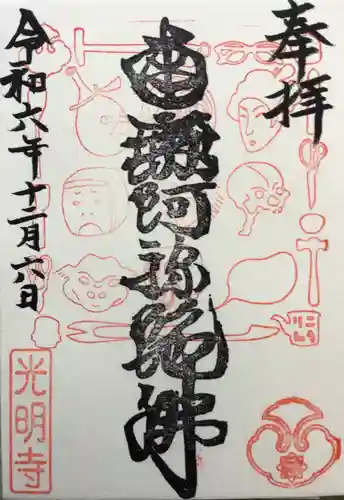 奉拝
南無阿弥陀佛
令和六年十一月六日
光明寺